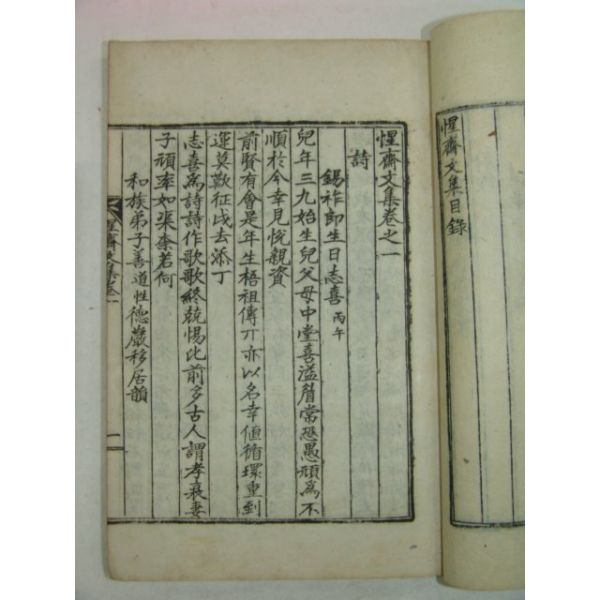 惺齋文集目錄
惺齋文集卷之一
詩
錫祚郎生日志喜 丙午
兒年三九始生兒父母中堂喜溢眉常恐愚頑為不
順於今幸見悅親資
前賢有會是年生梧祖傳丌亦以名幸値循環重到
運莫歎征戍去添丁
志喜為詩詩作歌歌終兢惕比前多古人謂孝衰妻
子頑率如渠柰若何
和族弟子善道性德巖移居韻
惺齋文集卷一
一